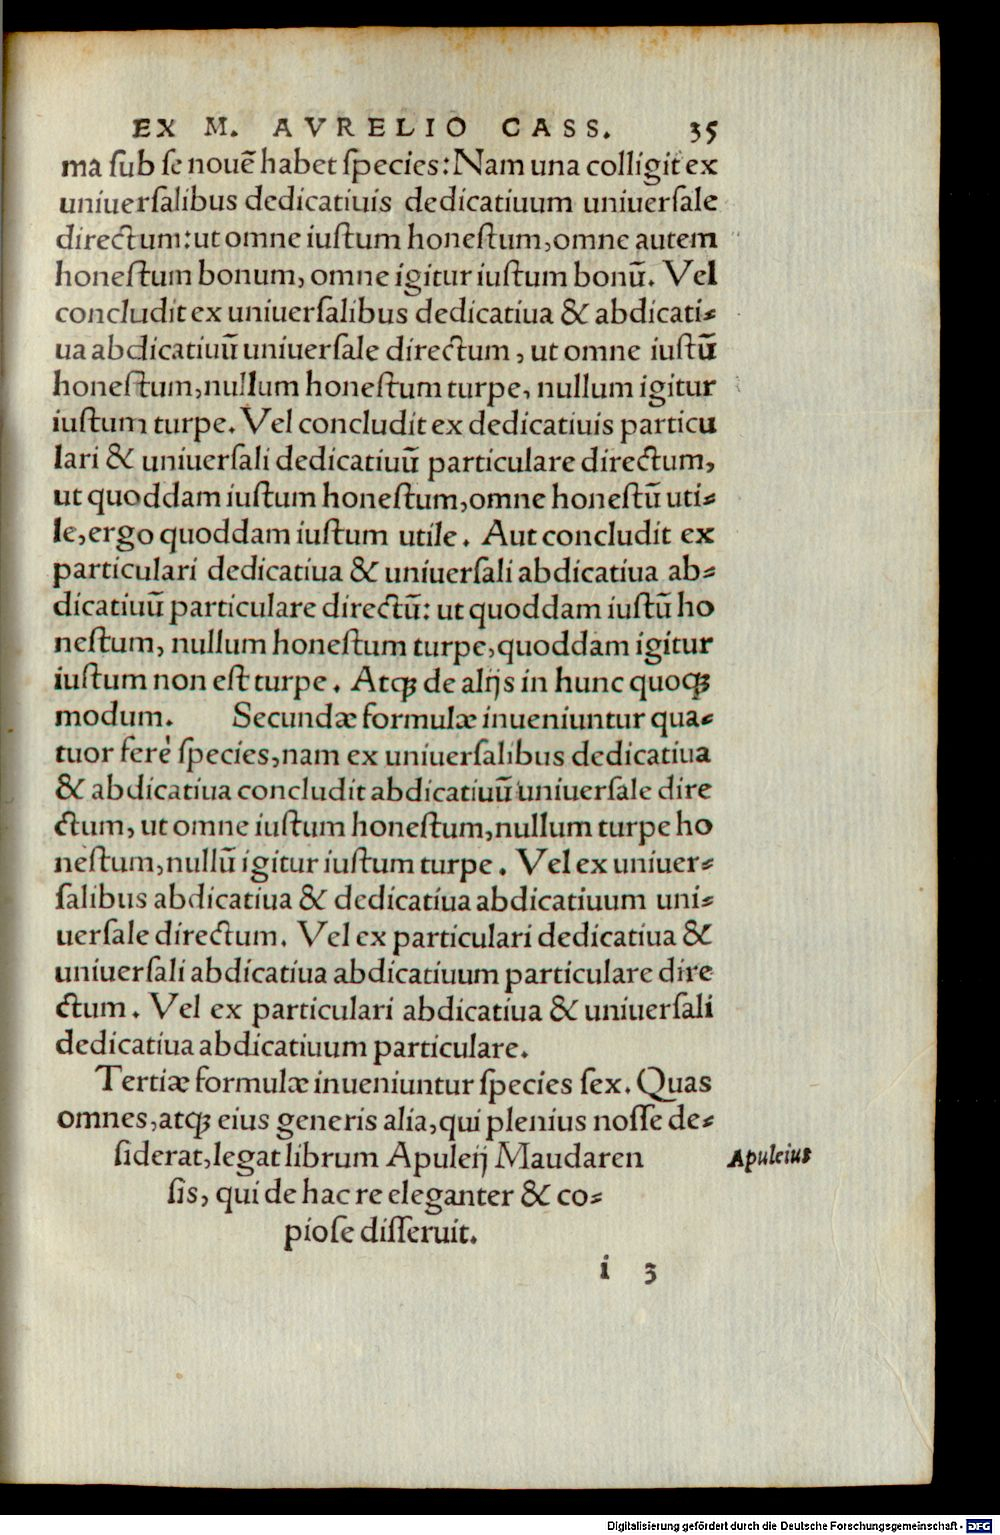 EX M. AVRELIO CASS. 35
ma ſub ſe nouē habet ſpecies: Nam una colligit ex
uniuerſalibus dedicatiuis dedicatiuum uniuerſale
directum: ut omne iuſtum honeſtum, omne autem
honeſtum bonum, omne igitur iuſtum bonū. Vel
concludit ex uniuerſalibus dedicatiua & abdicati⸗
ua abdicatiuū uniuerſale directum, ut omne iuſtū
honeſtum, nullum honeſtum turpe, nullum igitur
iuſtum turpe. Vel concludit ex dedicatiuis particu
lari & uniuerſali dedicatiuū particulare directum,
ut quoddam iuſtum honeſtum, omne honeſtū uti⸗
le, ergo quoddam iuſtum utile. Aut concludit ex
particulari dedicatiua & uniuerſali abdicatiua ab⸗
dicatiuū particulare directū: ut quoddam iuſtū ho
neſtum, nullum honeſtum turpe, quoddam igitur
iuſtum non eſt turpe. Atqꝫ de alijs in hunc quoqꝫ
modum. Secundæ formulæ inueniuntur qua⸗
tuor ferè ſpecies, nam ex uniuerſalibus dedicatiua
& abdicatiua concludit abdicatiuū uniuerſale dire
ctum, ut omne iuſtum honeſtum, nullum turpe ho
neſtum, nullū igitur iuſtum turpe. Vel ex uniuer⸗
ſalibus abdicatiua & dedicatiua abdicatiuum uni⸗
uerſale directum. Vel ex particulari dedicatiua &
uniuerſali abdicatiua abdicatiuum particulare dire
ctum. Vel ex particulari abdicatiua & uniuerſali
dedicatiua abdicatiuum particulare.
Tertiæ formulæ inueniuntur ſpecies ſex. Quas
omnes, atqꝫ eius generis alia, qui plenius noſſe de⸗
ſiderat, legat librum Apuleij Maudaren
Apuleius
ſis, qui de hac re eleganter & co⸗
pioſe diſſeruit.
i 3
Digitalisierung gefördert durch die Deutsche Forschungsgemeinschaft - DFG